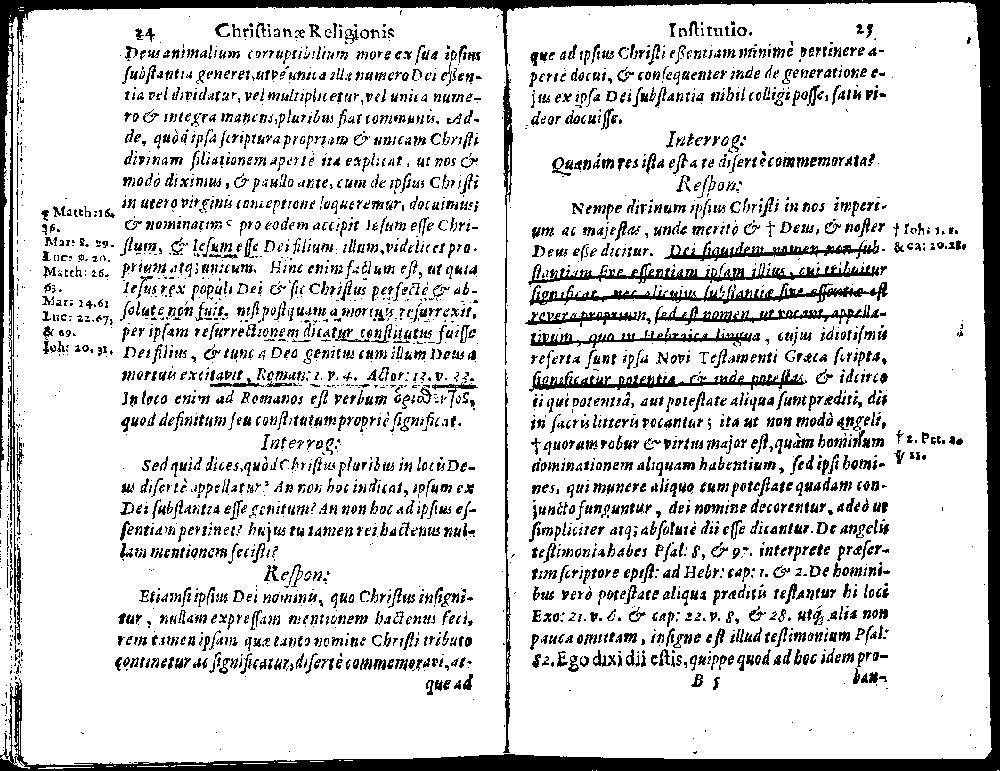 24 Christianæ Religionis
Deus animalium corruptibilium more ex sua ipsius
substantia generet, utve unica illa numero Dei essen-
tia vel dividatur, vel multiplicetur, vel unica nume-
ro & integra manens, pluribus fiat communis. Ad-
de, quòd ipsa scriptura propriam & unicam Christi
divinam filiationem apertè ita explicat, ut nos &
modò diximus, & paullo ante, cum de ipsius Christi
in utero virginis conceptione loqueremur, docuimus;
& nominatim pro eodem accipit Iesum esse Chri-
stum, & Iesum esse Dei filium illum, videlicet pro-
prium atq; unicum. Hinc enim factum est, ut quia
Iesus rex populi Dei & sic Christus perfectè & ab-
solutè non fuit, nisi postquam a mortuis resurrexit,
per ipsam resurrectionem dicatur constitutus fuisse
Dei filius, & tunc a Deo genitus cum illum Deus a
mortuis excitavit, Roman: 1. v. 4. Actor: 13. v. 33.
In loco enim ad Romanos est verbum ὁρισθέντος,
quod definitum seu constitutum propriè significat.
Interrog:
Sed quid dices, quòd Christus pluribus in locis De-
us disertè appellatur? An non hoc indicat, ipsum ex
Dei substantia esse genitum? An non hoc ad ipsius es-
sentiam pertinet? hujus tu tamen rei hactenus nul-
lam mentionem fecisti?
Respon:
Etiamsi ipsius Dei nominis, quo Christus insigni-
tur, nullam expressam mentionem hactenus feci,
rem tamen ipsam quæ tanto nomine Christi tributo
continetur ac significatur, disertè commemoravi, at-
que ad
Matth: 16.
16.
Mar: 8. 29.
Luc: 9. 20.
Matth: 26.
63.
Mar: 14.61
Luc: 22.67,
& 69.
Ioh: 20. 31.
Institutio. 25
que ad ipsius Christi essentiam minimè pertinere a-
pertè docui, & consequenter inde de generatione e-
jus ex ipsa Dei substantia nihil colligi posse, satis vi-
deor docuisse.
Interrog:
Quænam res ista est a te disertè commemorata?
Respon:
Nempe divinum ipsius Christi in nos imperi-
um ac majestas, unde meritò & † Deus, & noster
Deus esse dicitur. Dei siquidem nomen non sub-
stantiam sive essentiam ipsam illius, cui tribuitur
significat, nec alicujus substantiæ sive essentiæ est
revera proprium, sed est nomen, ut vocant, appella-
tivum, quo in Hebraica lingua, cujus idiotismis
referta sunt ipsa Novi Testamenti Græca scripta,
significatur potentia, & inde potestas. & idcirco
ii qui potentiâ, aut potestate aliqua sunt præditi, dii
in sacris litteris vocantur; ita ut non modò angeli,
† quorum robur & virtus major est, quàm hominum
dominationem aliquam habentium, sed ipsi homi-
nes, qui munere aliquo cum potestate quadam con-
juncto funguntur, dei nomine decorentur, adeò ut
simpliciter atq; absolutè dii esse dicantur. De angelis
testimonia habes Psal: 8, & 97. interprete præser-
tim scriptore epist: ad Hebr: cap: 1. & 2. De homini-
bus verò potestate aliqua præditis testantur hi loci
Exo: 21. v. 6. & cap: 22. v. 8, & 28. utq; alia non
pauca omittam, insigne est illud testimonium Psal:
82. Ego dixi dii estis, quippe quod ad hoc idem pro-
B 5 ban-
† Ioh: 1. 1.
& ca: 20.28.
† 2. Pet. 2.
℣ 11.